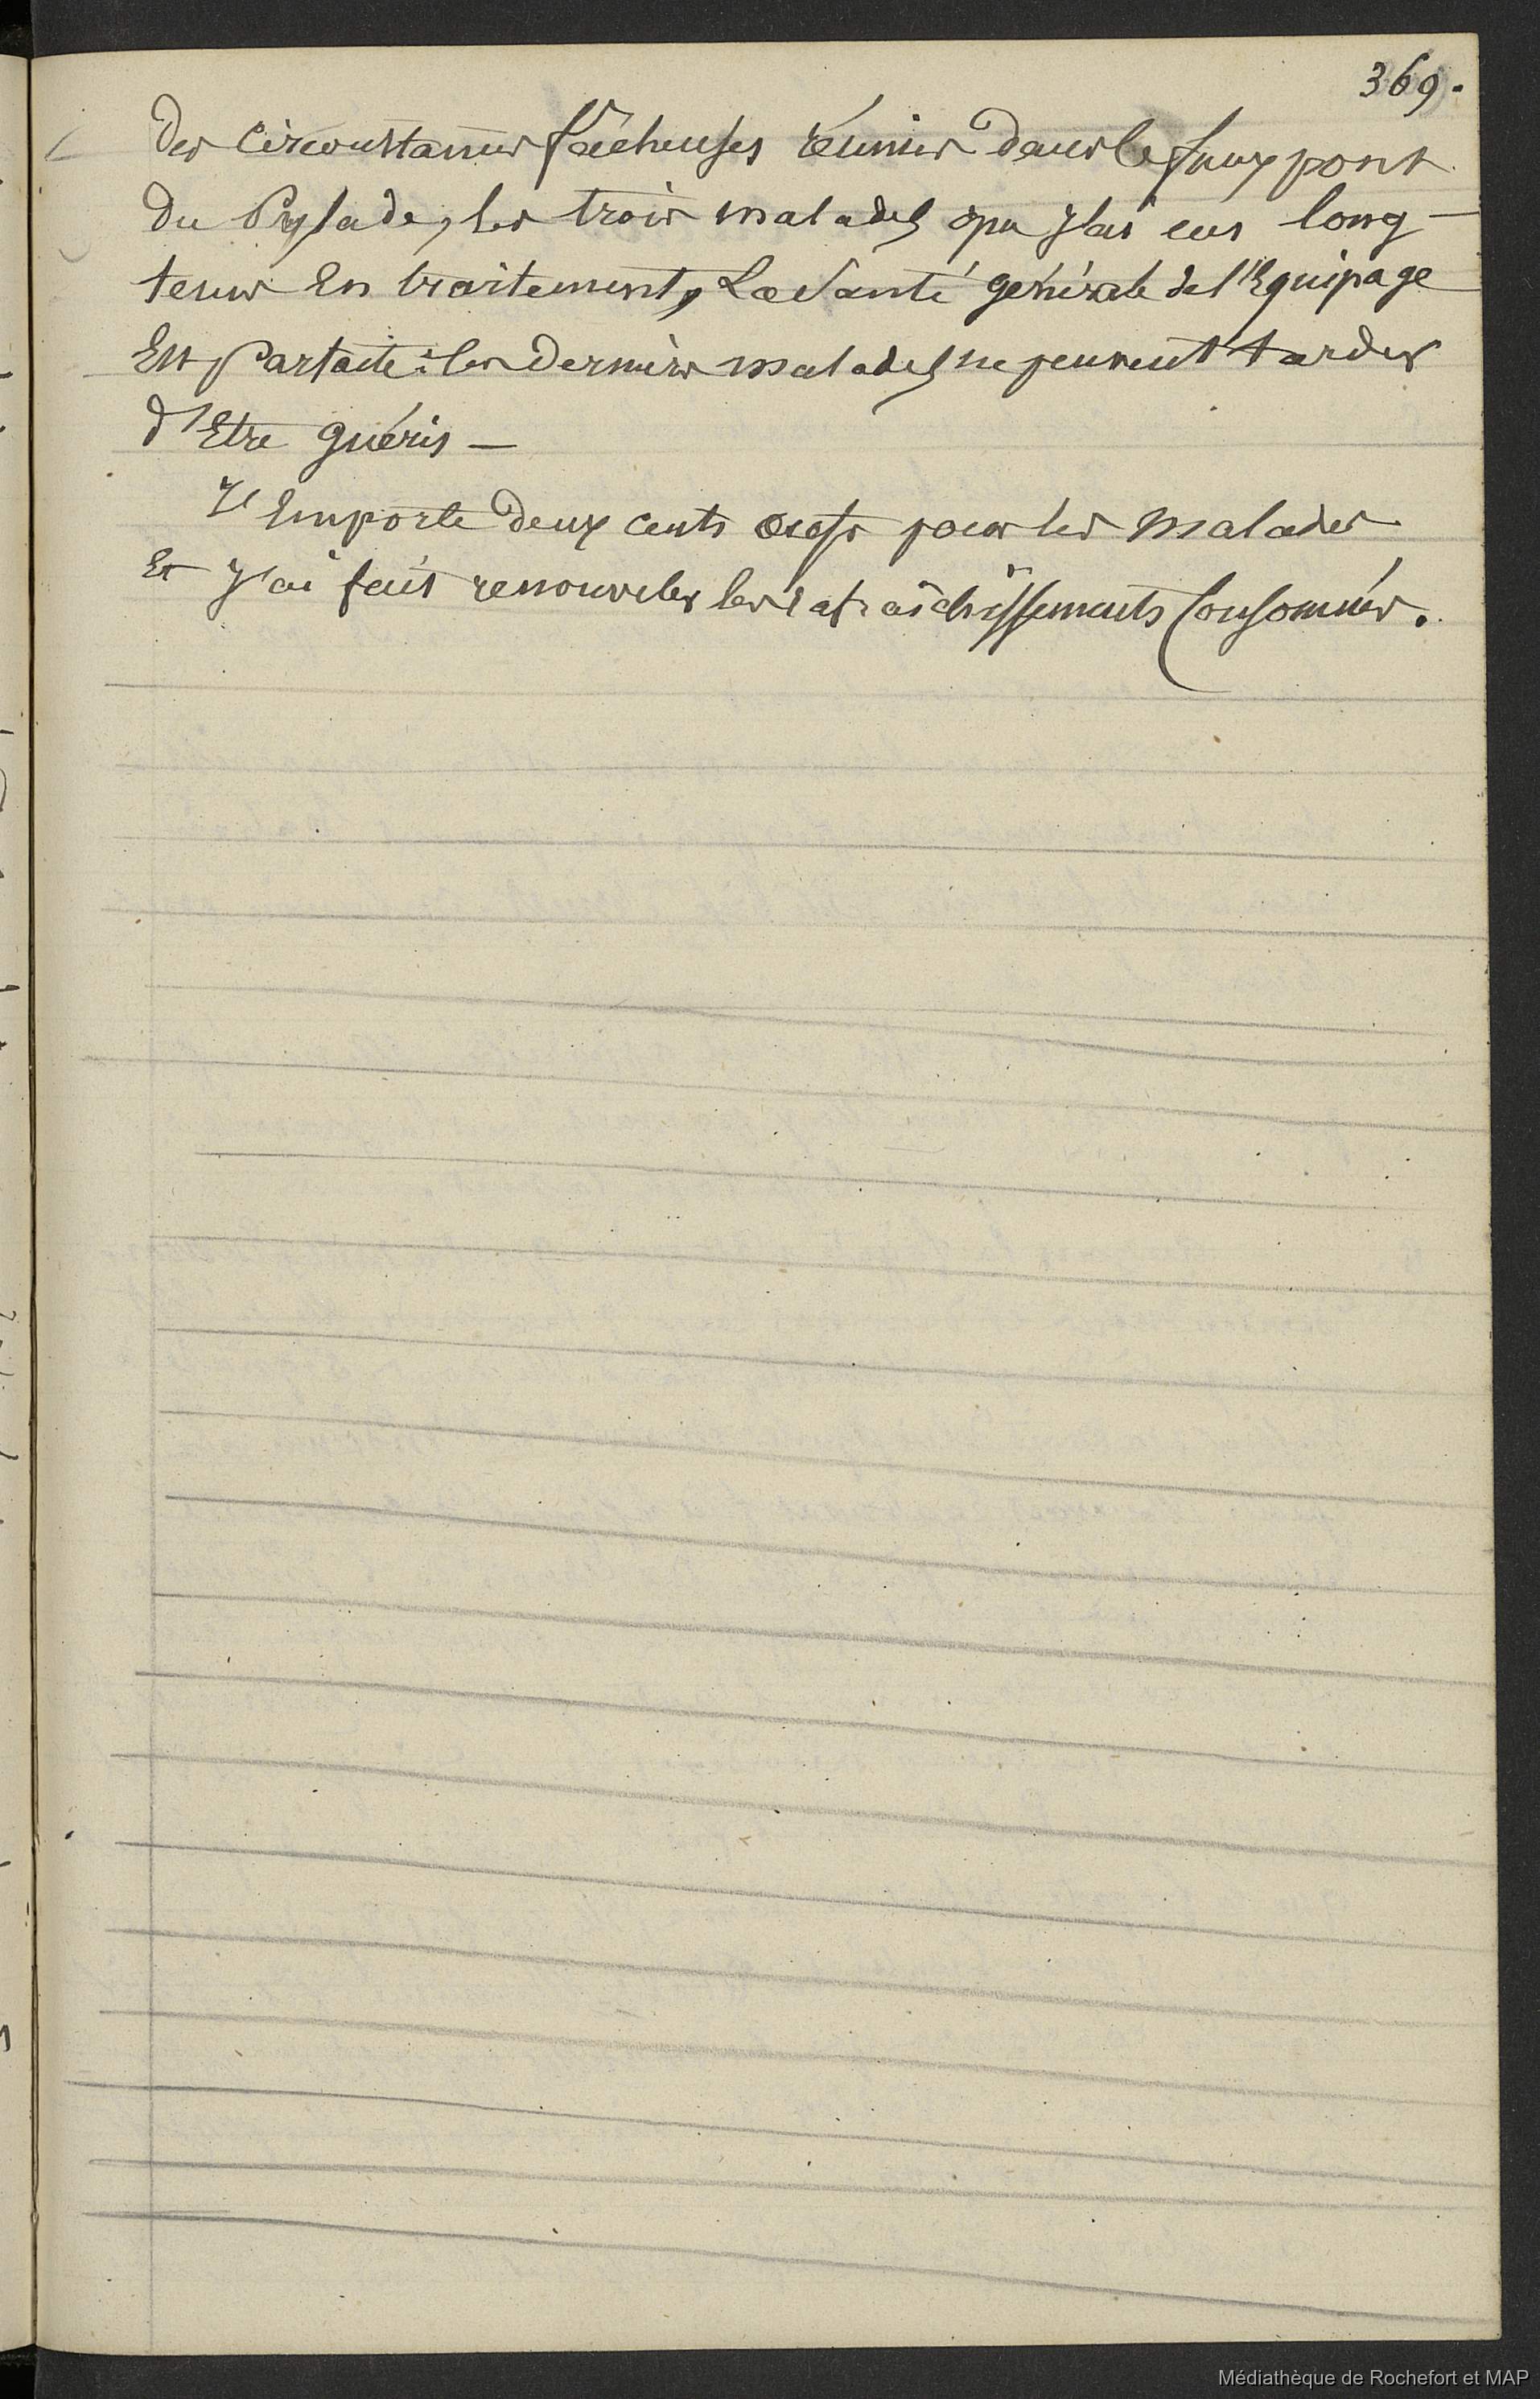 369.
des circonstances fâcheuses réunies dans le faux pont
du Pylade, les trois malades que j'ai eus long-
tems En traitement, La Santé générale de l'Equipage
Est Parfaite : les derniers malades ne peuvent tarder
d'Etre guéris —
J'Emporte deux cents œufs pour les malades
Et j'ai fait renouveler les rafraîchissements Consommés.
Médiathèque de Rochefort et MAP